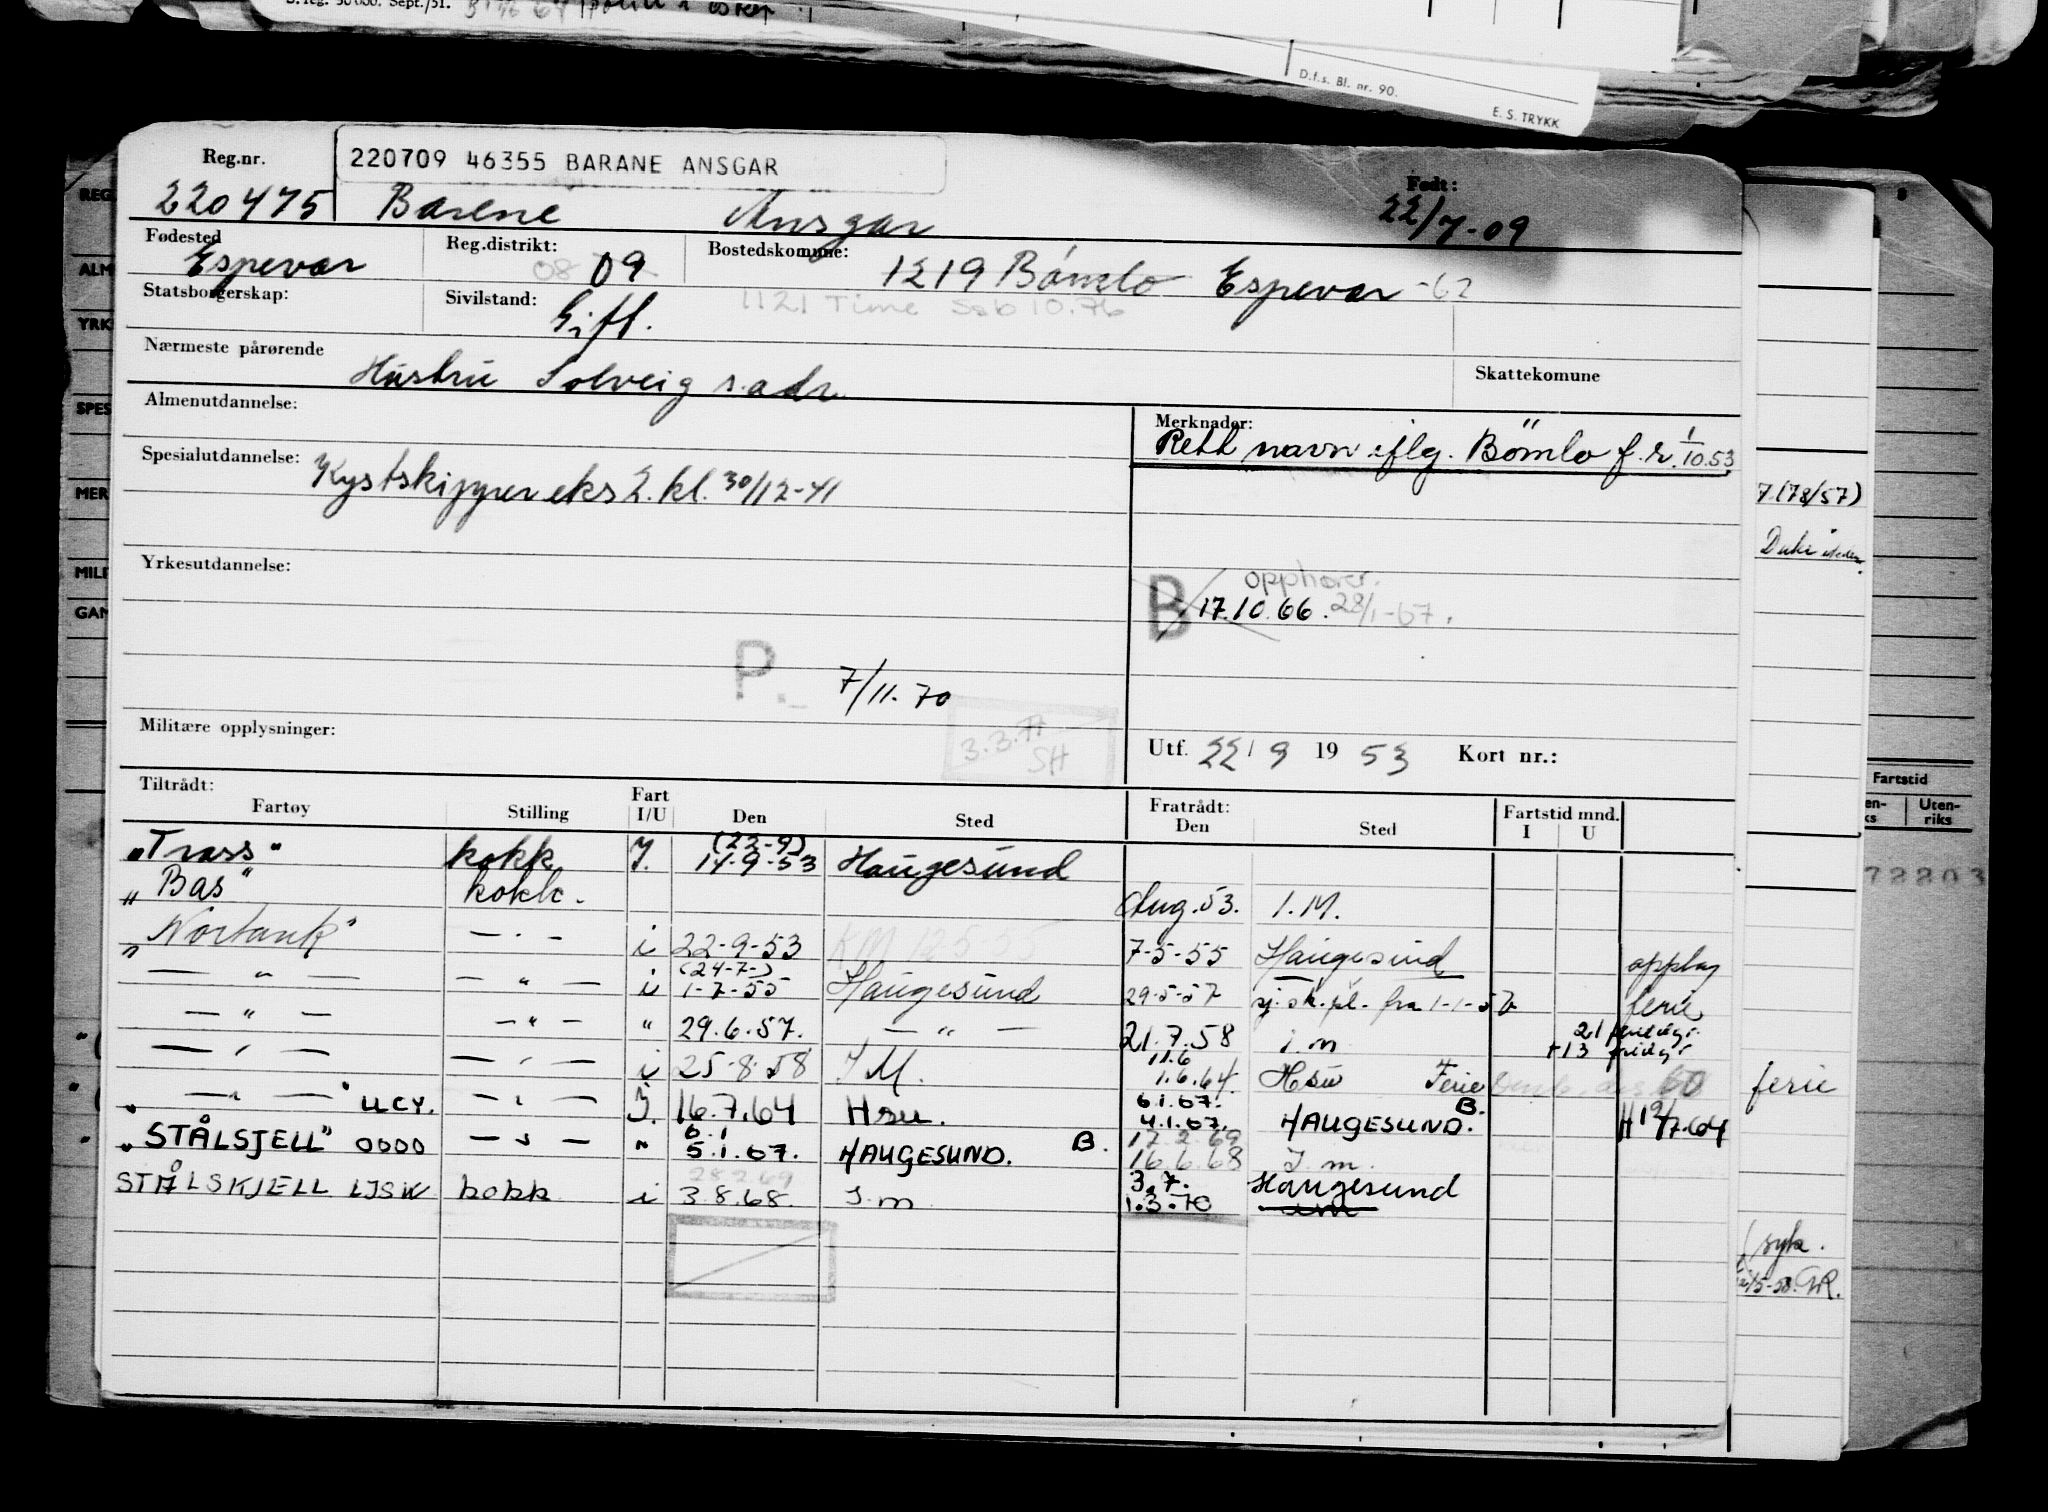 S. reg. 50 000. Sept./51.
D.f.s. Bl. nr. 90.
E. S. TRYKK
Reg.nr.
220709 46355 BARANE ANSGAR
Født:
220475 Barene Ansgar 22/7-09
Fødested Reg.distrikt: Bostedskommune:
Espevær 08 09 1219 Bømlo Espevær -62
Statsborgerskap: Sivilstand: 1121 Time Ssb 10.76
Gift.
Nærmeste pårørende Skattekomune
Hustru Solveig s. adr.
Almenutdannelse: Merknader:
Rett navn iflg. Bömlo f.r. 1/10.53
Spesialutdannelse: Kystskipper eks 2. kl. 30/12-41
7 (78/57)
Yrkesutdannelse:
opphører.
B 17.10.66. 28/1-67.
P. 7/11.70
3.3.71
SH
Militære opplysninger: Utf. 22/9 1953 Kort nr.:
Tiltrådt: Fart Fratrådt: Fartstid mnd.
Fartøy Stilling I/U Den Sted Den Sted I U
Fartstid
Uten-
riks
"Trass" kokk I. (22-9) 14-9-53 Haugesund
"Bas" kokk. Aug.53. I.M.
72803
"Nortank" — . — i 22-9-53 KM 12555 7-5-55 Haugesund opplag
— " — — " — i (24-7-) 1-7-55 Haugesund 29-5-57 sj.sk.pl. fra 1-1-57 ferie
— " — — " — " 29.6.57. — " — 21.7.58 i.m 21 feriedgr. +13 fridgr
— " — — " — i 25-8-58 I M. 11.6 1.6.64. Hsu Ferie 60 ferie
" — " — " LLCY. — " — I. 16.7.64 Hsu. 6.1.67. 4.1.67. HAUGESUND. B. H 19/7.64
"STÅLSJELL" OOOO — " — " 6.1 5.1.67. HAUGESUND. B. 17.2.69 16.6.68 I.m.
STÅLSKJELL LJSW kokk i 28269 3.8.68. I.m 3.7. 1.3.70 Haugesund
(syk.